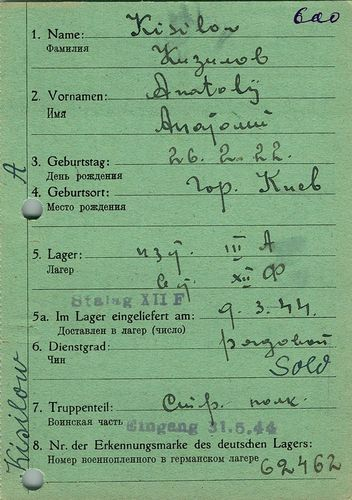 6ao
1. Name: Kisilow
Фамилия
Кизилов
2. Vornamen: Anatolij
Имя
Анатолий
3. Geburtstag: 26. 2. 22.
День рождения
4. Geburtsort: гор. Киев
Место рождения
A
5. Lager: III A
Лагер
XII Ф
Stalag XII F
5a. Im Lager eingeliefert am: 9. 3. 44.
Доставлен в лагер (число)
6. Dienstgrad: рядовой
Чин
Sold
7. Truppenteil: Стр. полк.
Воинская часть
Eingang 31.5.44
8. Nr. der Erkennungsmarke des deutschen Lagers:
Номер военнопленного в германском лагере
62462
Kisilow